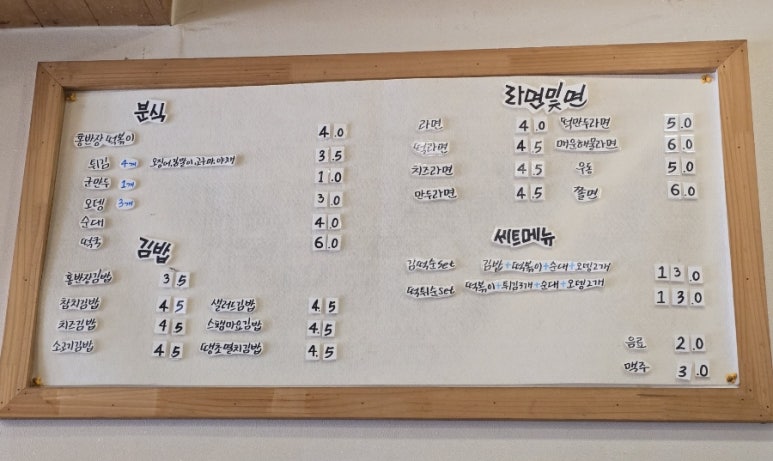 분식
홍반장 떡볶이 4.0
튀김 4개 오징어,김말이,고구마,야채 3.5
군만두 1개 1.0
오뎅 3개 3.0
순대 4.0
떡국 6.0
김밥
홍반장김밥 3.5
참치김밥 4.5 샐러드김밥 4.5
치즈김밥 4.5 스팸마요김밥 4.5
소고기김밥 4.5 땡초멸치김밥 4.5
라면및면
라면 4.0 떡만두라면 5.0
떡라면 4.5 매운해물라면 6.0
치즈라면 4.5 우동 5.0
만두라면 4.5 쫄면 6.0
씨트메뉴
김떡순set 김밥+떡볶이+순대+오뎅2개 13.0
떡튀순set 떡볶이+튀김3개+순대+오뎅2개 13.0
음료 2.0
맥주 3.0